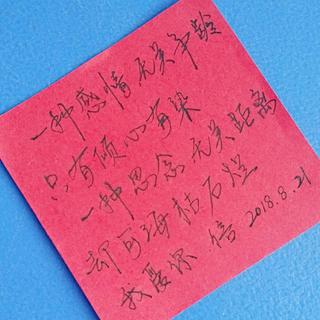 一种感情无关年龄
只有倾心有染
一种思念无关距离
却可海枯石烂
我爱你 倍 2018.8.21